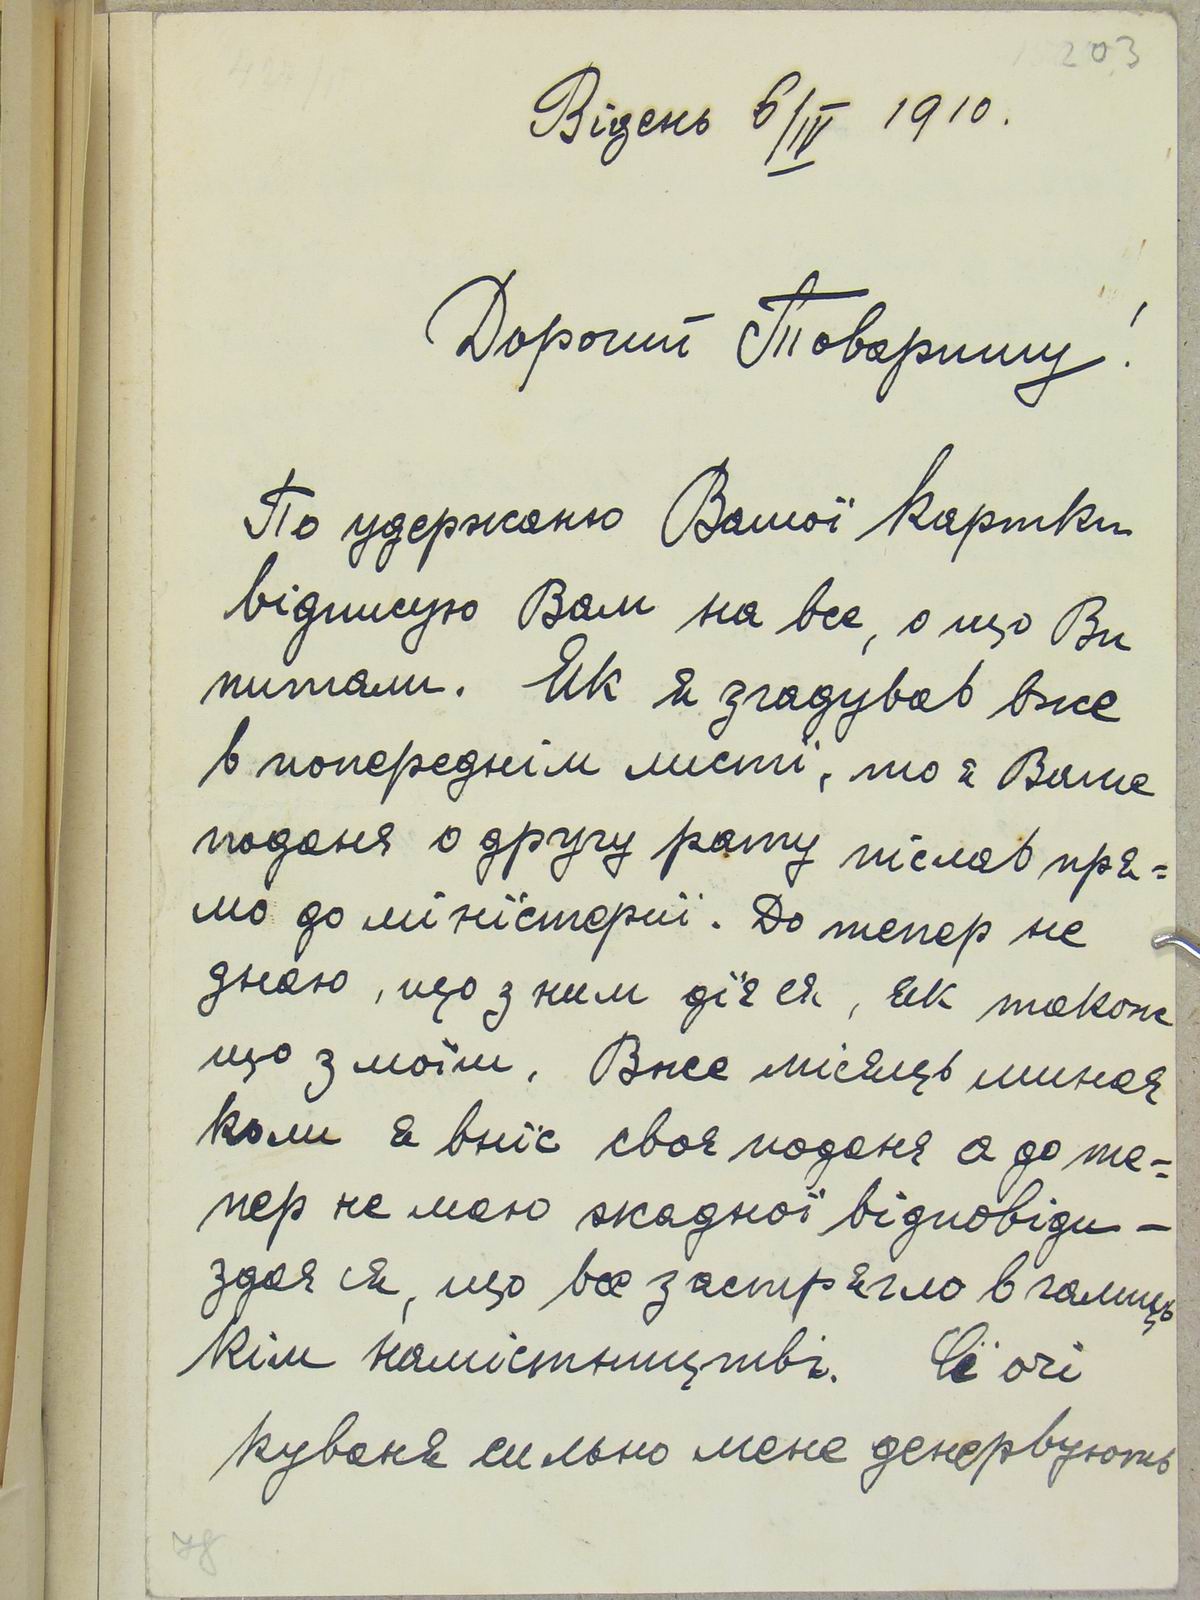 203
Відень 6/IV 1910.
Дорогий Товаришу!
По удержаню Вашої картки
відписую Вам на все, о що Ви
питали. Як я згадував вже
в попереднїм листї, то я Ваше
поданя о другу рату післав пря=
мо до мінїстерії. До тепер не
знаю, що з ним дїє ся, як також
що з моїм. Вже місяць минає
коли я внїс своє поданє а до те=
пер не маю жадної відповіди —
здає ся, що все застрягло в галиць
кім намістництві. Сї очі
куваня сильно мене денервують
78